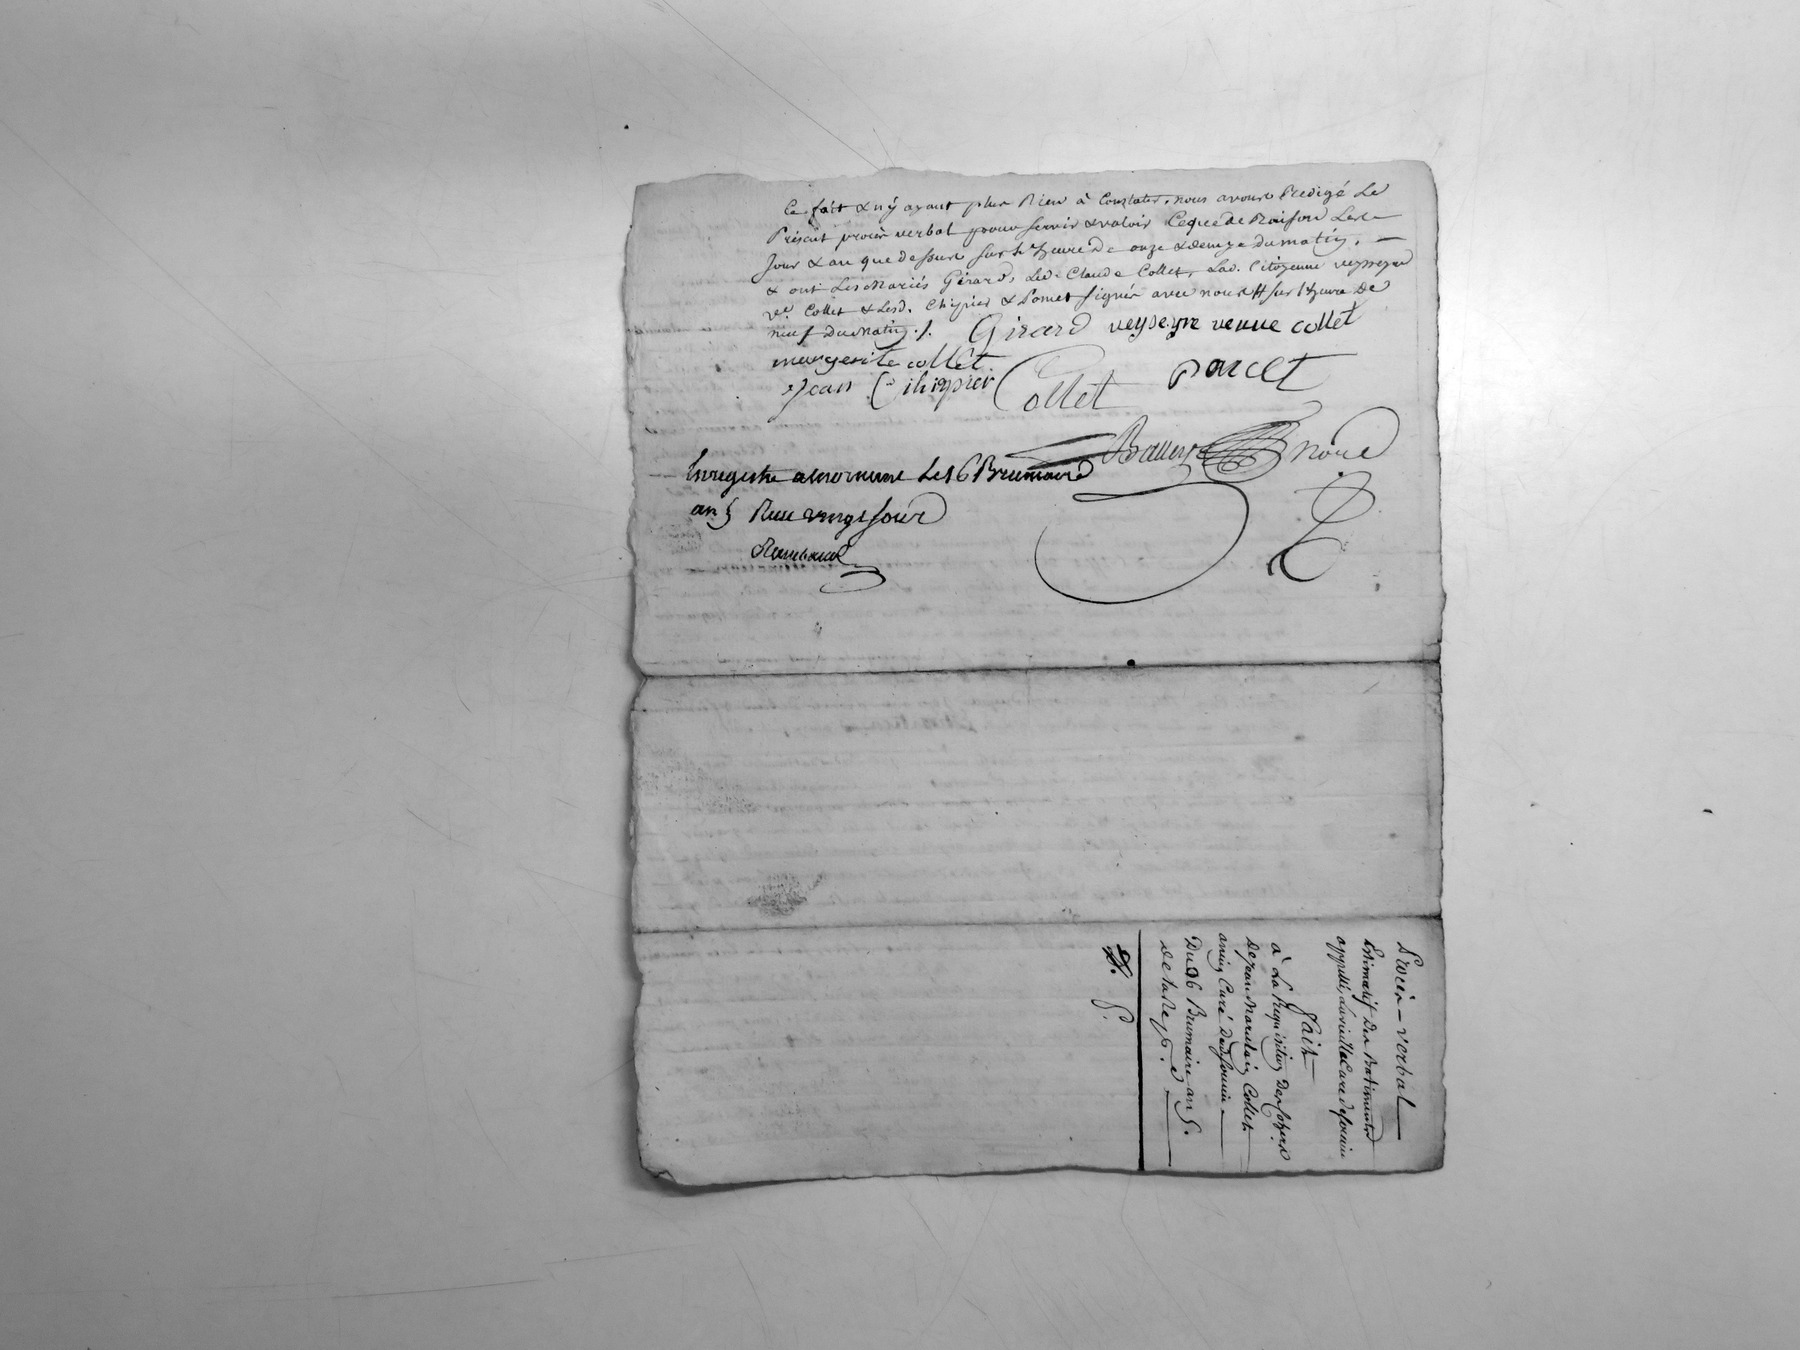 Ce fait & ny ayant plus Rien à Constater, nous avons Redigé Le
Présent procès verbal pour servir & valoir Ceque de Raison Les
Jour & an que dessus sur L'heure de onze & demye du matin, —
& ont Les mariés Gérard, Led. Claude Collet, Lad. Citoyenne veysseyre
ve. Collet & Lesd. Chipier & Ponset signés avec nous # sur l'heure de
neuf du matin ./. Girard veyseyre veuve collet
margerite collet
Jean Chipier Collet poncet
Noire
Enregistré a Le 16 Brumaire
an 5 Reçu vingt sous
Rambaud
Procès-verbal
Estimatif des Batiments
appellés La vieille Cure de
fait
à La Requisition des
de Jean Collet
ancien Curé de
Du 16 Brumaire an 5.
de la Rep. e
5.